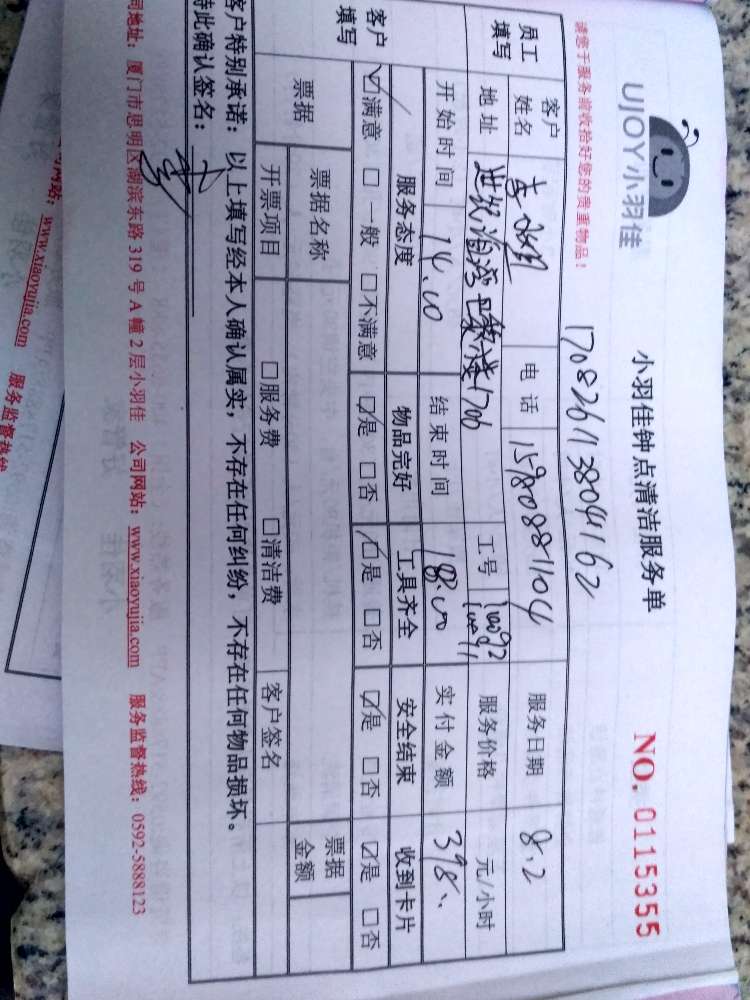 UJOY小羽佳
小羽佳钟点清洁服务单
NO. 0115355
请您于服务前收拾好您的贵重物品!
员工填写
客户姓名
电话 15980881104
服务日期 8.2
地址
1706
工号
服务价格 元/小时
开始时间 14.00
结束时间 18.00
实付金额 398
客户填写
服务态度 物品完好 工具齐全 安全结束 收到卡片
☑满意 □一般 □不满意 ☑是 □否 ☑是 □否 ☑是 □否 ☑是 □否
票据 票据名称 票据金额
开票项目 □服务费 □清洁费 客户签名
客户特别承诺:以上填写经本人确认属实,不存在任何纠纷,不存在任何物品损坏。
特此确认签名:
司地址:厦门市思明区湖滨东路 319 号 A 幢 2 层小羽佳 公司网站:www.xiaoyujia.com 服务监督热线:0592-5888123
网站:www.xiaoyujia.com 服务监督热线